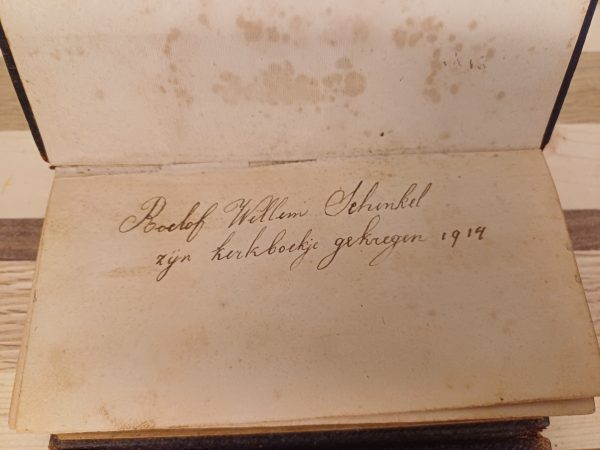 Roelof Willem Schenkel
zijn kerkboekje gekregen 1914